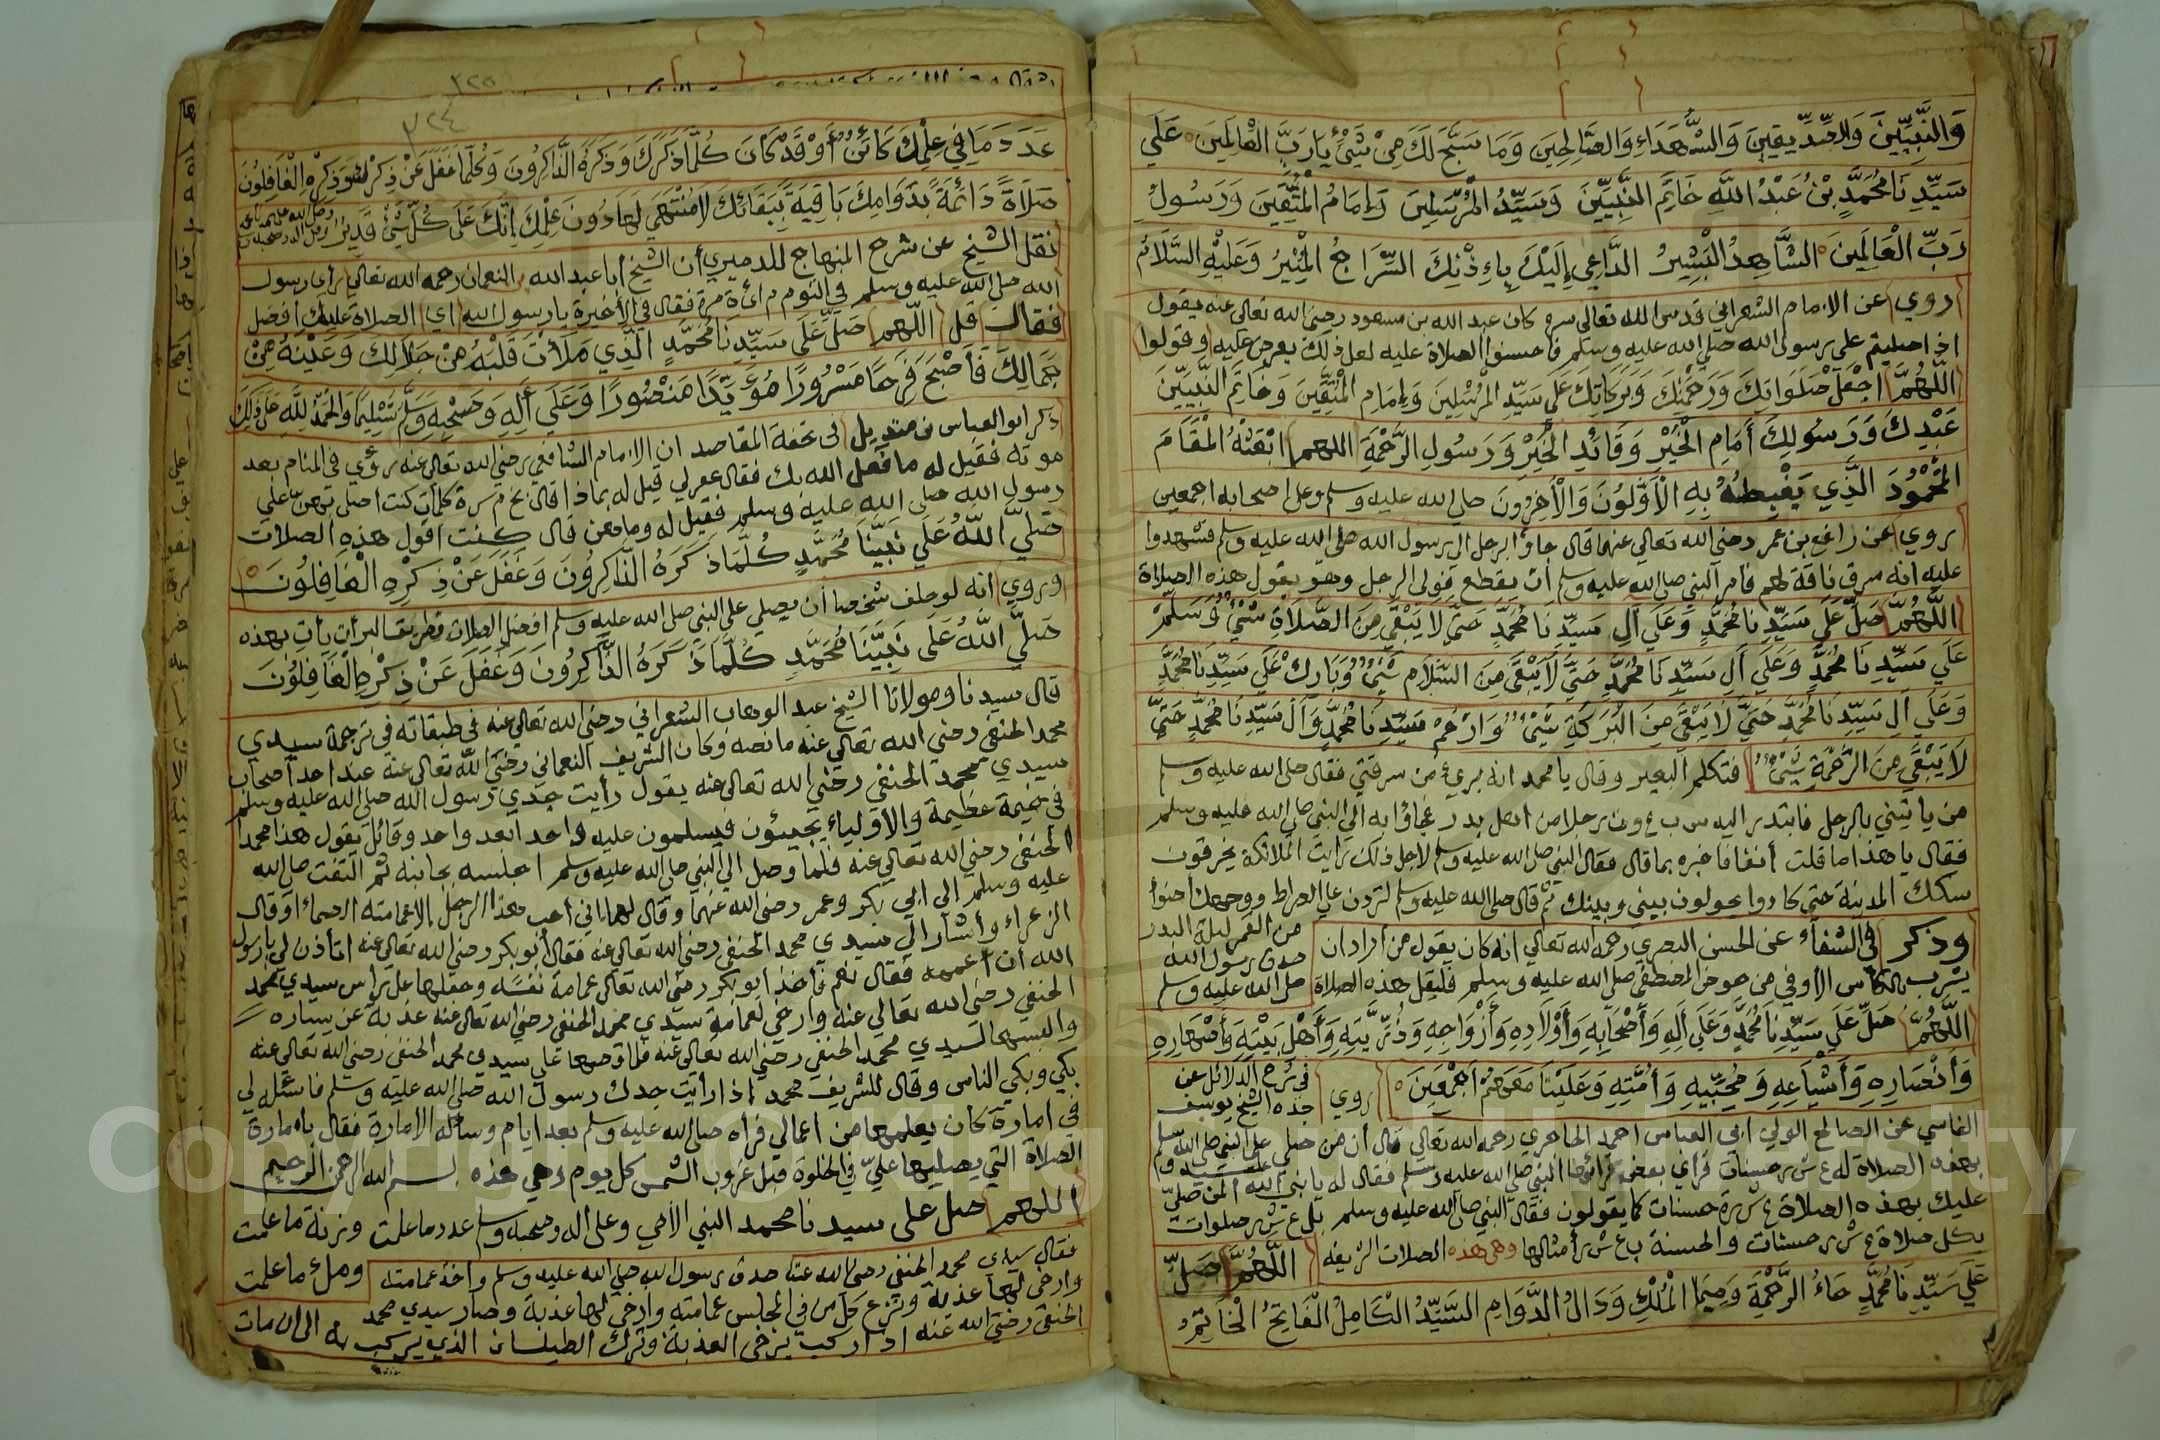 وَالنَّبِيِّينَ وَالصِّدِّيقِينَ وَالشُّهَدَاءِ وَالصَّالِحِينَ وَمَا سَبَّحَ لَكَ مِنْ شَيْءٍ يَا رَبَّ الْعَالَمِينَ عَلَي
سَيِّدِنَا مُحَمَّدٍ بْنُ عَبْدُ اللَّهِ خَاتِمِ النَّبِيِّينَ وَسَيِّدُ الْمُرْسَلِينَ وَإِمَامُ الْمُتَّقِينَ وَرَسُولِ
رَبِّ الْعَالَمِينَ الشَّاهِدُ الْبَشِيرُ الدَّاعِي إِلَيْكَ بِإِذْنِكَ السِّرَاجُ الْمُنِيرُ وَعَلَيْهِ السَّلَامُ
روي عن الإمام الشعراني قدس الله تعالى سره كان عبد الله بن مسعود رضي الله تعالى عنه يقول
اذا صليتم علي رسول الله صلي الله عليه وسلم فاحسنوا الصلاة عليه لعل ذلك يعرض عليه وقولوا
اللَّهُمَّ اجْعَلْ صَلَوَاتِكَ وَرَحْمَتِكَ وَبَرَكَاتِكَ عَلَى سَيِّدِ الْمُرْسَلِينَ وَإِمَامِ الْمُتَّقِينَ وَخَاتَمِ النَّبِيِّينَ
عَبْدِكَ وَرَسُولِكَ أَمَامِ الْخَيْرِ وَقَائِدِ الْخَيْرِ وَرَسُولِ الرَّحْمَةِ اللهم ابْعَثْهُ الْمَقَامَ
الْمَحْمُودَ الَّذِي يَغْبِطُهُ بِهِ الْأَوَّلُونَ وَالْأَخِرُونَ صلي الله عليه وسلم وعلى اصحابه اجمعين
روي عن بن عمر رضي الله تعالى عنهما قال جاؤا برجل الى رسول الله صلي الله عليه وسلم فشهدوا
عليه انه سرق ناقة لهم فامر النبي صلي الله عليه وسلم ان يقطع فولى الرجل وهو يقول هذه الصلاة
اللَّهُمَّ صَلِّ عَلَي سَيِّدِنَا مُحَمَّدٍ وَعَلَي آلِ سَيِّدِنَا مُحَمَّدٍ حَتَّى لَا يَبْقَى مِنَ الصَّلَاةِ شَيْءٌ وَسَلِّمْ
عَلَي سَيِّدِنَا مُحَمَّدٍ وَعَلَي آلِ سَيِّدِنَا مُحَمَّدٍ حَتَّي لَا يَبْقَى مِنَ السَّلَامِ شَيْءٌ وَبَارِكْ عَلَي سَيِّدِنَا مُحَمَّدٍ
وَعَلَي آلِ سَيِّدِنَا مُحَمَّدٍ حَتَّي لَا يَبْقَى مِنَ الْبَرَكَةِ شَيْءٌ وَارْحَمْ سَيِّدِنَا مُحَمَّدٍ وَآلَ سَيِّدِنَا مُحَمَّدٍ حَتَّي
لَا يَبْقَي مِنَ الرَّحْمَةِ شَيْءٌ فتكلم البعير وقال يا محمد انه بريء من سرقتي فقال صلي الله عليه وسلم
من يأتيني بالرجل فابتدر اليه من اهل بدر فجاؤا به الي النبي صلي الله عليه وسلم
فقال يا هذا ما قلت آنفا فاخبره بما قال فقال النبي صلي الله عليه وسلم لاجل ذلك رايت الملائكة يخرقون
سكك المدينة حتى كادوا يحولون بيني وبينك ثم قال صلي الله عليه وسلم لتردن علي الصراط ووجهك أضوأ
من القمر ليلة البدر
صدق رسول الله
صلي الله عليه وسلم
وذكر في الشفاء عن الحسن البصري رحمه الله تعالي انه كان يقول من أراد ان
يشرب بالكأس الأوفي من حوض المصطفى صلي الله عليه وسلم فليقل هذه الصلاة
اللَّهُمَّ صَلِّ عَلَي سَيِّدِنَا مُحَمَّدٍ وَعَلَي آلِهِ وَأَصْحَابِهِ وَأَوْلَادِهِ وَأَزْوَاجِهِ وَذُرِّيَّتِهِ وَأَهْلِ بَيْتِهِ وَأَصْهَارِهِ
وَأَنْصَارِهِ وَأَشْيَاعِهِ وَمُحِبِّيهِ وَأُمَّتِهِ وَعَلَيْنَا مَعَهُمْ أَجْمَعِينَ روي في شرح الدلائل عن
جده الشيخ يوسف
الفاسي عن الصالح الولي ابي العباس احمد الحاجري رحمه الله تعالي قال أن من صلى على النبي صلي الله عليه وسلم
بهذه الصلاة له عشر حسنات فرأى النبي صلي الله عليه وسلم فقال له يا نبي الله المن صلي
عليك بهذه الصلاة عشرة حسنات كما يقولون فقال النبي صلي الله عليه وسلم بل عشر صلوات
بكل صلاة عشر حسنات والحسنة بعشر أمثالها وهي هذه الصلات الشريفه اللَّهُمَّ صَلِّ
عَلَي سَيِّدِنَا مُحَمَّدٍ حَاءُ الرَّحْمَةِ وَمِيمَا الْمُلْكِ وَدَالُ الدَّوَامِ السَّيِّدُ الْكَامِلُ الْفَاتِحُ الْخَاتِمُ
٣٢٥
٣٢٤
عَدَدَ مَا فِي عِلْمِكَ كَائِنٌ أَوْ قَدْ كَانَ كُلَّمَا ذَكَرَكَ وَذَكَرَهُ الذَّاكِرُونَ وَكُلَّمَا غَفَلَ عَنْ ذِكْرِكَ وَذِكْرِهِ الْغَافِلُونَ
صَلَاةً دَائِمَةً بِدَوَامِكَ بَاقِيَةً بِبَقَائِكَ لَا مُنْتَهَى لَهَا دُونَ عِلْمِكَ إِنَّكَ عَلَى كُلِّ شَيْءٍ قَدِيرٌ
نقل الشيخ عن شرح المنهاج للدميري أن الشيخ أبا عبد الله النعمان رحمه الله تعالي رأى رسول
الله صلي الله عليه وسلم في النوم مائة مرة فقال في الأخيرة يا رسول الله اي الصلاة عليك أفضل
فقال قل اللَّهم صَلِّ عَلَى سَيِّدِنَا مُحَمَّدٍ الَّذِي مَلَأْتَ قَلْبَهُ مِنْ جَلَالِكَ وَعَيْنَهُ مِنْ
جَمَالِكَ فَأَصْبَحَ فَرِحًا مَسْرُورًا مُؤَيَّدًا مَنْصُورًا وَعَلَي آلِهِ وَصَحْبِهِ وَسَلِّمْ تَسْلِيمًا وَالْحَمْدُ لِلَّهِ عَلَى ذَلِكَ
ذكر ابو العباس بن منديل في تحفة المقاصد ان الإمام الشافعي رضي الله تعالى عنه رؤي في المنام بعد
موته فقيل له ما فعل الله بك فقال غفر لي قيل له بماذا قال بخمسة كلمات كنت اصلي بهن علي
رسول الله صلي الله عليه وسلم فقيل له وما هن قال كنت اقول هذه الصلات
صَلَّي اللَّهُ عَلَي نَبِيِّنَا مُحَمَّدٍ كُلَّمَا ذَكَرَهُ الذَّاكِرُونَ وَغَفَلَ عَنْ ذِكْرِهِ الْغَافِلُونَ
وروي انه لو حلف شخصا أن يصلي علي النبي صلي الله عليه وسلم افضل الصلات فطريق البر أن يأت بهذه
صَلَّي اللَّهُ عَلَى نَبِيِّنَا مُحَمَّدٍ كُلَّمَا ذَكَرَهُ الذَّاكِرُونَ وَغَفَلَ عَنْ ذِكْرِهِ الْغَافِلُونَ
قال سيدنا ومولانا الشيخ عبد الوهاب الشعراني رضي الله تعالي عنه في طبقاته في ترجمة سيدي
محمد الحنفي رضي الله تعالي عنه ما نصه وكان الشريف النعماني رضي الله تعالي عنه عند احد أصحاب
سيدي محمد الحنفي رضي الله تعالى عنه يقول رأيت جدي رسول الله صلي الله عليه وسلم
في خيمة عظيمة والأولياء يجيئون فيسلمون عليه واحدا بعد واحد وقائل يقول هذا محمد
الحنفي رضي الله تعالي عنه فلما وصل الي النبي صلي الله عليه وسلم اجلسه بجانبه ثم التفت صلي الله
عليه وسلم الى ابي بكر وعمر رضي الله عنهما وقال لهما اني أحب هذا الرجل إلا عمامته الصماء أو قال
الزعراء وأشار الي سيدي محمد الحنفي رضي الله تعالى عنه فقال أبو بكر رضي الله تعالى عنه اتأذن لي يا رسول
الله ان أعممه فقال نعم فأخذ أبو بكر رضي الله تعالى عمامة نفسه وجعلها على رأس سيدي محمد
الحنفي رضي الله تعالي عنه وارخى لعمامة سيدي محمد الحنفي رضي الله تعالى عنه عذبة عن يساره
والبسها لسيدي محمد الحنفي رضي الله تعالى عنه فلما قصها على سيدي محمد الحنفي رضي الله تعالي عنه
بكي وبكي الناس وقال للشريف محمد اذا رأيت جدك رسول الله صلي الله عليه وسلم فاسئله لي
في امارة كان يعلمها من اعمالي فرأه صلي الله عليه وسلم بعد ايام وسأله الامارة فقال بامارة
الصلاة التي يصليها عليّ في الخلوة قبل غروب الشمس كل يوم وهي هذه بسم الله الرحمن الرحيم
اللهم صل على سيدنا محمد النبي الأمي وعلى اله وصحبه وسلم عدد ما علمت وزنة ما علمت
وملء ما علمت
فقال سيدي محمد الحنفي رضي الله عنه صدق رسول الله صلي الله عليه وسلم وأخذ عمامته
وارخى لها عذبة ونزع كل من في المجلس عمامته وارخي لها عذبة وصار سيدي محمد
الحنفي رضي الله عنه اذا ركب يرخى العذبة وترك الطيلسان الذي يركب به الى ان مات
Copyright © King Saud University